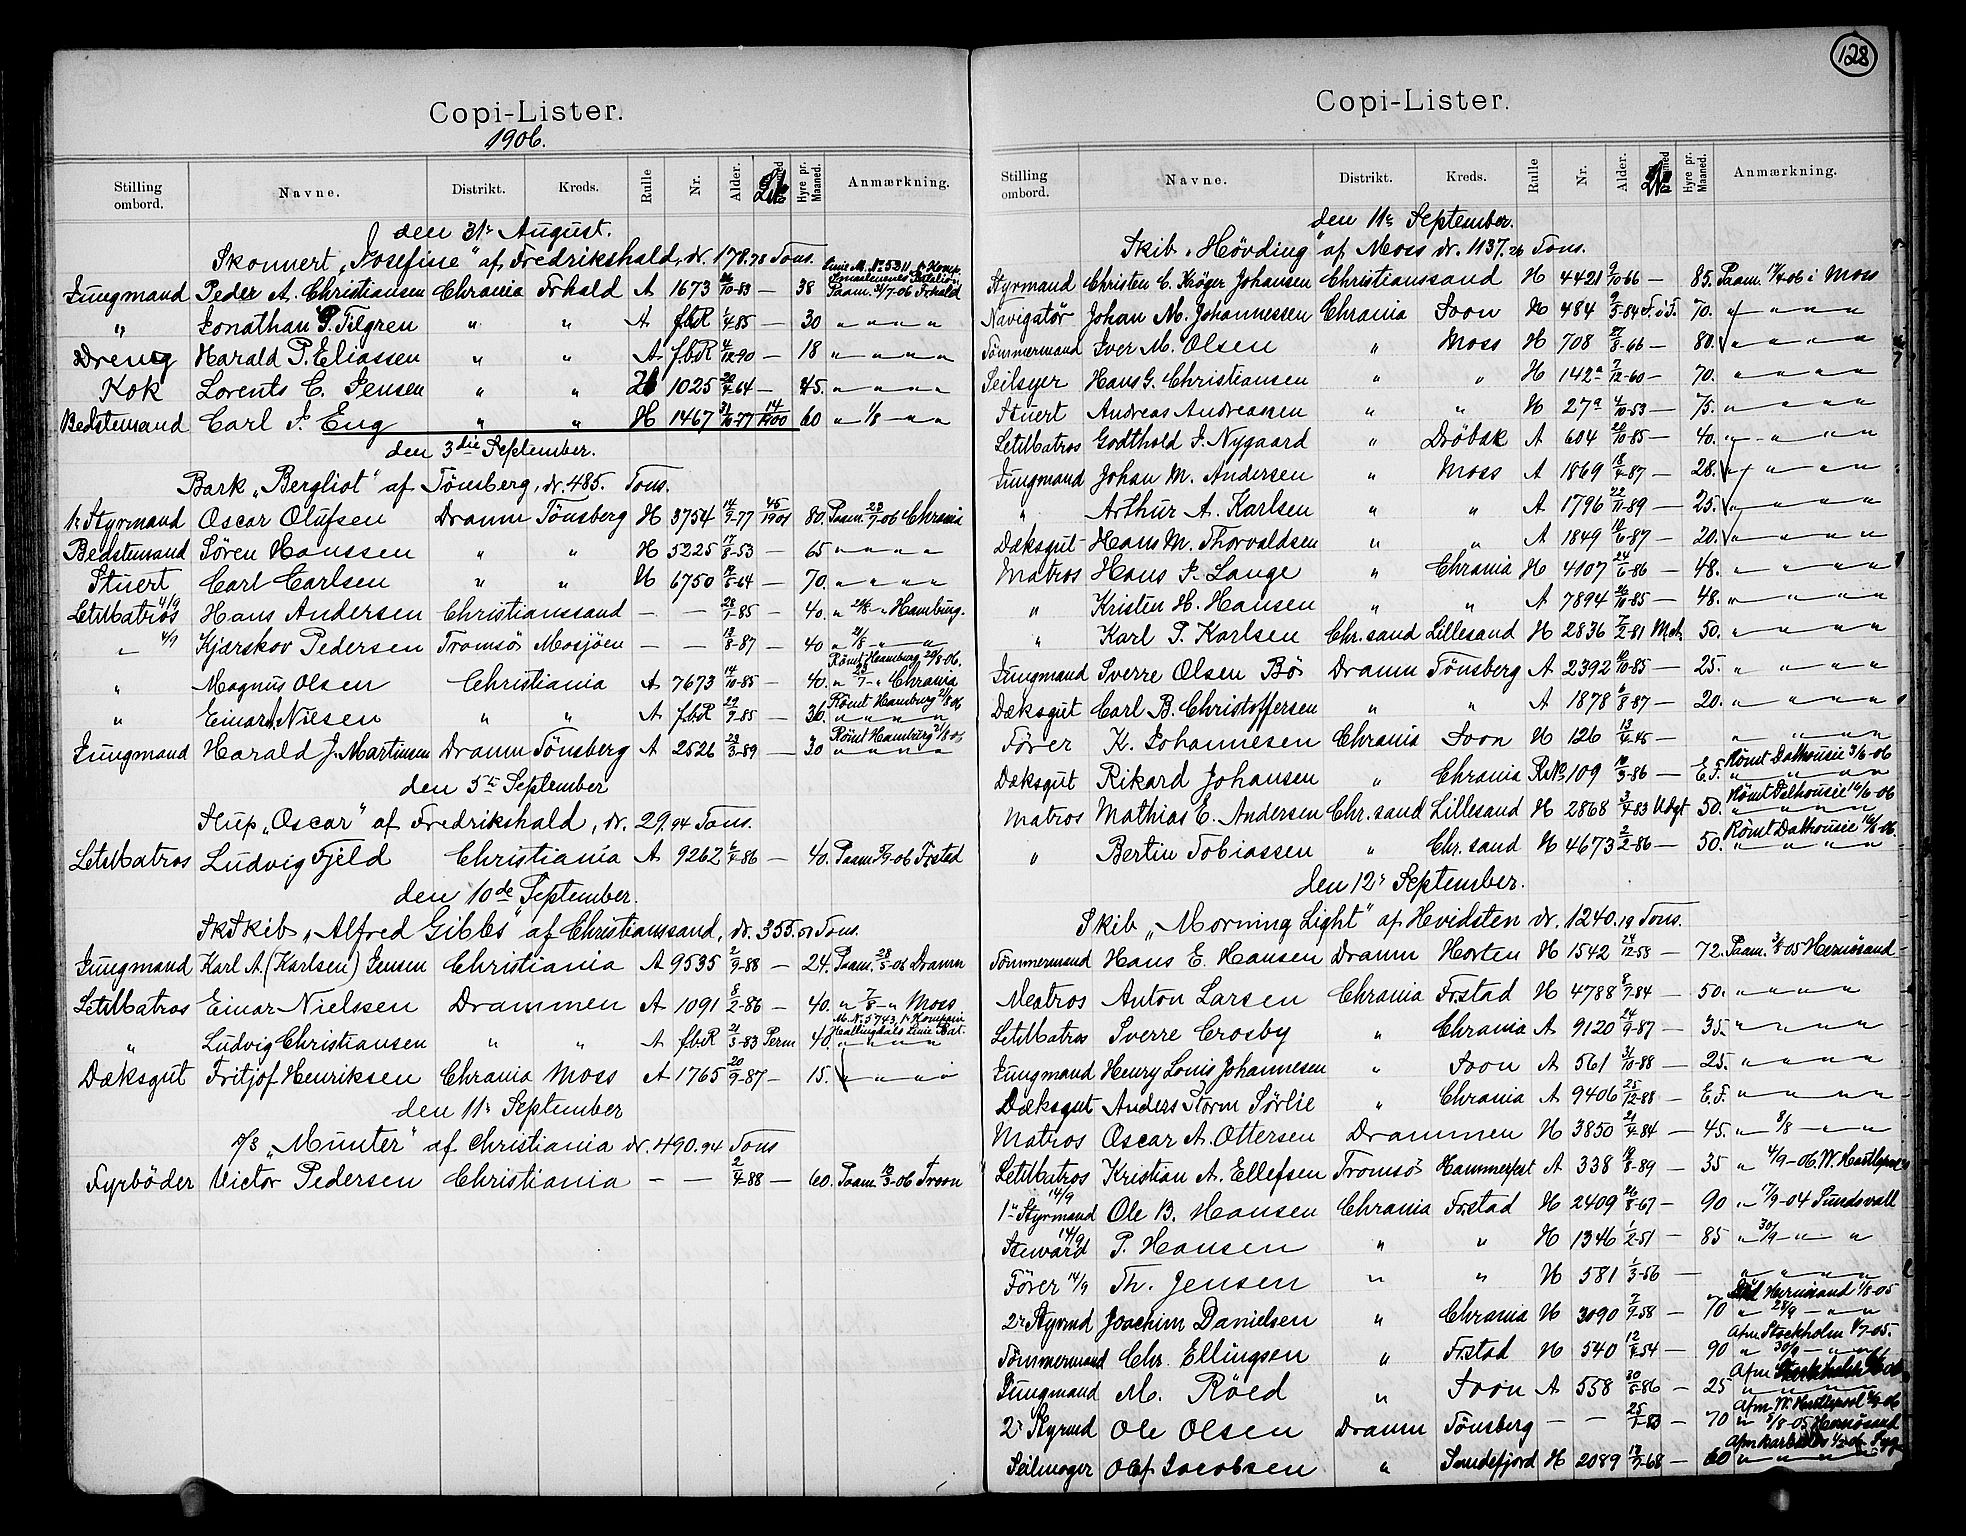 Copi-Lister.
1906.
Stilling ombord. Navne. Distrikt. Kreds. Rulle Nr. Alder. Hyre pr. Maaned. Anmærkning.
den 31te August.
Skonnert „Josefine" af Fredrikshald, dr. 178.78 Tons.
Jungmand Peder A. Christiansen Chrania Frhald A 1673 10-83 — 38 Paam. 31/7-06 Frhald
" Jonathan P. Filgren " " A fbR 1/4 85 — 30 " " " "
Dreng Harald P. Eliassen " " A fbR 4/12 90 — 18 " " " "
Kok Lorents C. Jensen " " H 1025 20/4-64 — 45. " " " "
Bedstemand Carl J. Eng " " H 1467 31/10-77 14/1900 60 " 1/8 " "
den 3die September.
Bark „Bergliot" af Tönsberg, dr. 485. Tons.
1ste Styrmand Oscar Olufsen Dramn Tönsberg H 3754 14/9-77 45/1901 80. Paam. 23/7-06 Chrania
Bedstemand Sören Hanssen " " H 5225 17/8-53 — 65 " " " "
Stuert Carl Carlsen " " H 6750 19/5-64 — 70. " " " "
LetMatros 4/9 Hans Andersen Christianssand — — 28/1-85 — 40. " 24/8 " Hamburg.
" 4/9 Kjærskov Pedersen Tromsö Mosjöen — — 13/8-87 — 40 " 21/8 " "
Römt Hamburg 20/8-06.
" Magnus Olsen Christiania A 7673 14/10-85 — 40. " 23/7 " Chrania
Römt Hamburg 21/8 06
" Einar Nilsen " " A fbR 29/9-85 — 36. " " " "
Römt Hamburg 21/8-06
Jungmand Harald J. Martinsen Dramn Tönsberg A 2526 23/3-89 — 30 " " " "
den 5te September
Slup „Oscar" af Fredrikshald, dr. 29.94 Tons.
LetMatros Ludvig Fjeld Christiania A 9262 6/4-86 — 40. Paam. 06 Frstad
den 10de September.
SkSkib „Alfred Gibbs" af Christianssand, dr. 355.51 Tons.
Jungmand Karl A. (Karlsen) Jensen Christiania A 9535 2/9-88 — 24. Paam. 28/5-06 Dramn
LetMatros Einar Nielssen Drammen A 1091 8/2-86 — 40. " 7/8 " Moss
M. N. 5743 1ste Kompani
Hallingdals Linie Bat.
" Ludvig Christiansen " " A fbR 21/3-83 Perm 40. " " " "
Dæksgut Fritjof Henriksen Chrania Moss A 1765 20/9-87 — 15. " " " "
den 11te September
D/S „Munter" af Christiania dr. 490.94 Tons
Fyrböder Victor Pedersen Christiania — — 2/4-88 — 60. Paam. 19/3-06 Troon
128
Copi-Lister.
Stilling ombord. Navne. Distrikt. Kreds. Rulle Nr. Alder. Hyre pr. Maaned. Anmærkning.
den 11te September.
Skib „Hövding" af Moss dr. 1137.26 Tons.
Styrmand Christen C. Kröger Johansen Christianssand H 4421 9/10-66 — 85. Paam. 17/4-06 i Moss
Navigatör Johan M. Johannessen Chrania Soon H 484 9/5-84 F.i.F. 70. " " " "
Tömmermand Iver M. Olsen " Moss H 708 27/8-66 — 80. " " " "
Seilsyer Hans G. Christiansen " " H 142a 7/12-60 — 70. " " " "
Stuert Andreas Andreassen " " H 27a 4/10-53 — 75. " " " "
LetMatros Godthold S. Nygaard " Dröbak A 604 20/10-85 — 40. " " " "
Jungmand Johan M. Andersen " Moss A 1869 18/4-87 — 28. " " " "
" Arthur A. Karlsen " " A 1796 22/11-89 — 25. " " " "
Dæksgut Hans M. Thorvaldsen " " A 1849 19/6-87 — 20. " " " "
Matros Hans S. Lange " Chrania H 4107 24/6-86 — 48. " " " "
" Kristen H. Hansen " " A 7894 20/10-85 — 48. " " " "
" Karl P. Karlsen Chr.sand Lillesand H 2836 7/2-81 50. " " " "
Jungmand Sverre Olsen Bö Dramn Tönsberg A 2392 10/10-85 — 25. " " " "
Dæksgut Carl B. Christoffersen " " A 1878 6/8-87 — 20. " " " "
Förer K. Johannesen Chrania Soon H 126 13/4-45 " " " "
Römt Dalhousie 3/6-06
Dæksgut Rikard Johansen " Chrania 109 10/3-86 — E.F. " " " "
Römt Dalhousie 14/6-06
Matros Mathias E. Andersen Chr.sand Lillesand H 2868 3/4-83 Udgt 50. " " " "
Römt Dalhousie 14/6-06.
" Bertin Tobiassen " Chr.sand H 4673 2/2-86 — 50. " " " "
den 12te September.
Skib „Morning Light" af Hvidsten dr. 1240.19 Tons.
Tömmermand Hans E. Hansen Dramn Horten H 1542 24/12-58 — 72. Paam. 3/8-05 Hernösand
Matros Anton Larsen Chrania Frstad H 4788 8/7-84 — 50. " " " "
LetMatros Sverre Crosby " Chrania A 9120 24/9-87 — 35. " " " "
Jungmand Henry Louis Johannesen " Soon A 561 31/10-88 — 25. " " " "
Dæksgut Anders Storm Sörlie " Chrania A 9406 25/12-88 — E.F. " " " "
Matros Oscar A. Ottersen Drammen H 3850 21/4-84 — 45. " 8/8 " "
LetMatros Kristian A. Ellefsen Tromsö Hammerfest A 338 19/8-89 — 35 " 4/9-06 W. Hartlepool
1ste Styrmand 14/9 Ole B. Hansen Chrania Frstad H 2409 26/8-67 — 90 " 17/9-04 Sundsvall
Steward 14/9 P. Hansen " " H 1346 1/2-51 — 85 " 30/9 " "
Förer 14/9 Th. Jensen " " H 581 1/3-56 — " " " "
Hernösand 1/8-05
2den Styrmd Joachim Danielsen " Chrania H 3090 7/9-58 — 70 " 28/9 " "
Afm. Stockholm 8/7-05.
Tömmermand Chr. Ellingsen " Frstad H 540 12/4-54 — 90 " 30/9 " "
Afm
Jungmand M. Röed " Soon A 558 30/5-86 — 25 " " " "
Afm. W. Hartlepool 4/9-06
2den Styrmd Ole Olsen Dramn Tönsberg — — 25/1-83 — 70 " 5/8-05 Hernösand
Seilmager Olaf Jacobsen " Sandefjord H 2089 19/7-68 — 60 " " " "